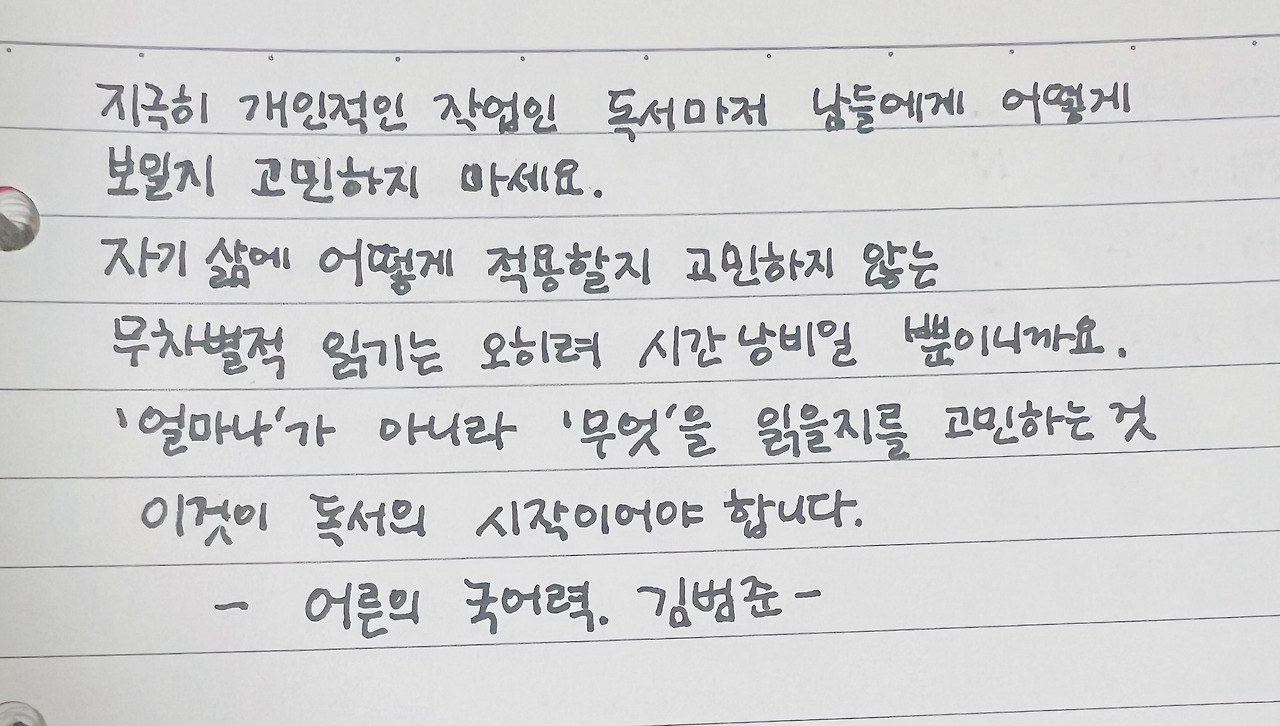 지극히 개인적인 작업인 독서마저 남들에게 어떻게
보일지 고민하지 마세요.
자기 삶에 어떻게 적용할지 고민하지 않는
무차별적 읽기는 오히려 시간 낭비일 뿐이니까요.
'얼마나'가 아니라 '무엇'을 읽을지를 고민하는 것
이것이 독서의 시작이어야 합니다.
- 어른의 국어력. 김범준 -